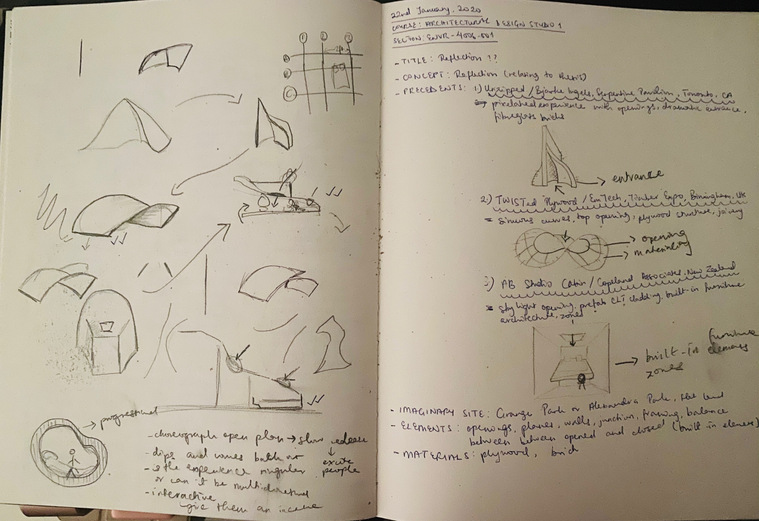 → progressional
- choreograph open plan → slow release
↓
excite people
- dips and waves both or
- is the experience singular
or can it be multidirectional
- interactive
give them an incentive
22nd January, 2020
COURSE: ARCHITECTURAL DESIGN STUDIO 1
SECTION: ENVR-4006-001
- TITLE: Reflection ??
- CONCEPT: Reflection (relating to thesis)
- PRECEDENTS: 1) Unzipped / Bjarke Ingels, Serpentine Pavilion, Toronto, CA
→ pixelated experience with openings, dramatic entrance,
fibreglass bricks
→ entrance
2) TWISTed Plywood / EmTech, Timber Expo, Birmingham, UK
* sinuous curves, top opening, plywood structure, joinery
→ opening
→ materiality
3) AB Studio Cabin / Copeland Associates, New Zealand
* sky light opening, prefab CLT cladding, built-in furniture
architecture, zones
→ built-in furniture elements
zones
- IMAGINARY SITE: Grange Park or Alexandra Park, flat land
- ELEMENTS: openings, planes, walls, junction, framing, balance
between between opened and closed (built in elements)
- MATERIALS: plywood, brick